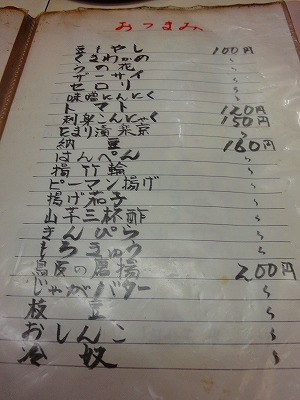 おつまみ
豆もやし 100円
くきわかめ 〃
うの花 〃
ザーサイ 〃
セロリ 〃
味噌にんにく 〃
トマト 120円
刺身こんにゃく 150円
とまり漬 〃
納豆 160円
はんぺん 〃
揚竹輪 〃
ピーマン揚げ 〃
揚げ茄子 〃
山芋三杯酢 〃
きんぴら 〃
もろきゅう 〃
鳥皮の唐揚 200円
じゃがバター 〃
枝豆 〃
おしんこ 〃
冷奴 〃